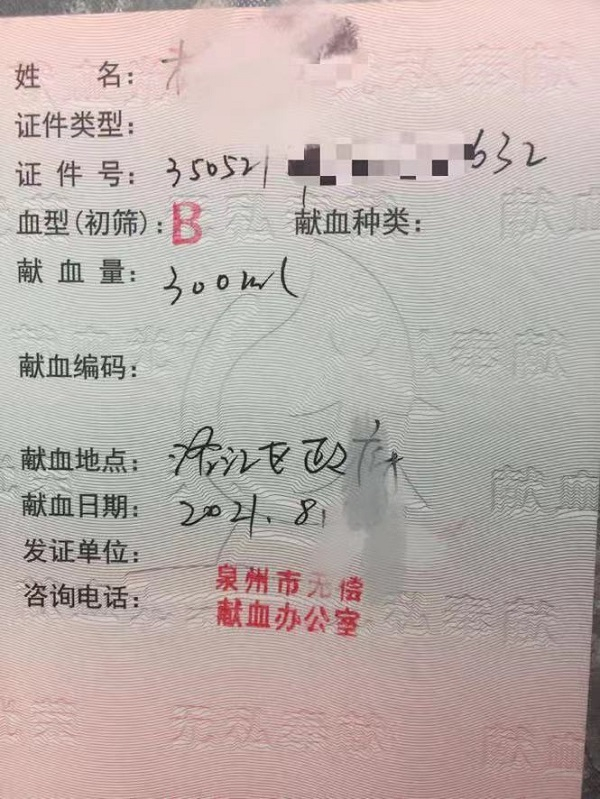 姓 名：
证件类型：
证 件 号：350521 632
血型(初筛)：B 献血种类：
献 血 量：300ml
献血编码：
献血地点：洛江区政府
献血日期：2021.8
发证单位：
咨询电话：
泉州市无偿
献血办公室